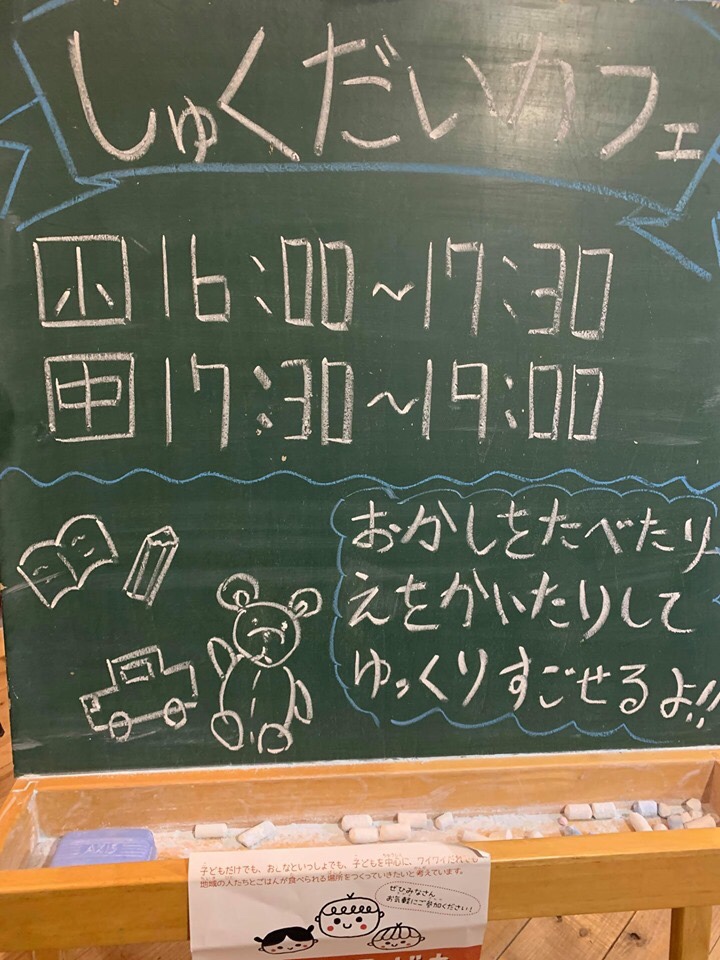 しゅくだいカフェ
小 16:00~17:30
中 17:30~19:00
おかしをたべたり
えをかいたりして
ゆっくりすごせるよ!!
AXIS
子どもだけでも、おとなといっしょでも、子どもを中心に、ワイワイ
地域の人たちとごはんが食べられる場所をつくっていきたいと考えています。
ぜひみなさん
お気軽にご参加ください!